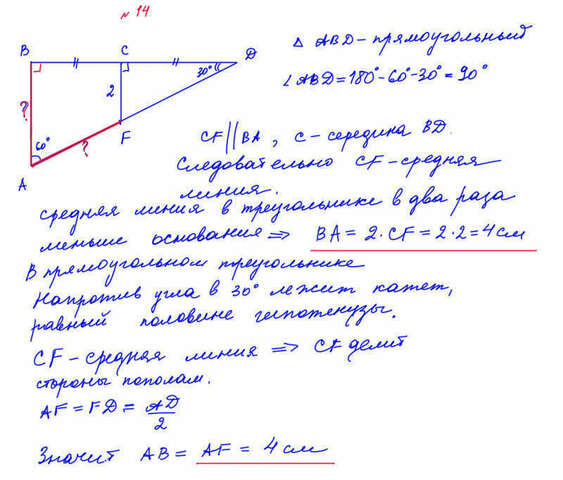 № 14
B
C
D
30°
2
?
F
60°
?
A
△ ABD - прямоугольный
∠ABD = 180° - 60° - 30° = 90°
CF || BA , C - середина BD.
Следовательно CF - средняя
линия.
средняя линия в треугольнике в два раза
меньше основания ⇒ BA = 2·CF = 2·2 = 4 см
В прямоугольном треугольнике
Напротив угла в 30° лежит катет,
равный половине гипотенузы.
CF - средняя линия ⇒ CF делит
стороны пополам.
AF = FD = AD/2
Значит AB = AF = 4 см